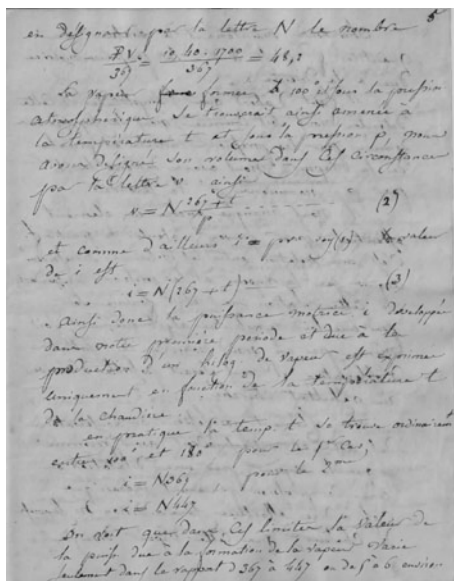 5
en designant par la lettre N le nombre
PV/367 = 10,40.1700/367 = 48,2
La vapeur formée à 100° et sous la pression
atmospherique se trouverait ainsi amenée à
la température t et sous la pression p, nous
avons designé son volume dans ces circonstances
par la lettre v ainsi
v = N 267+t/p (2)
et comme d'ailleurs i = pv la valeur
de i est
i = N(267+t) (3)
Ainsi donc la puissance motrice i developpée
dans notre premiere periode et due à la
production d'un kilog. de vapeur est exprimée
uniquement en fonction de la température t
de la chaudière.
en pratique la temp. t se trouve ordinairement
entre 100° et 180° pour le 1er cas,
i = N367 pour le 2me
i = N447
On voit que dans ces limites la valeur de
la puiss. due à la formation de la vapeur varie
seulement dans le rapport d 367 à 447 ou de 5 à 6 environ